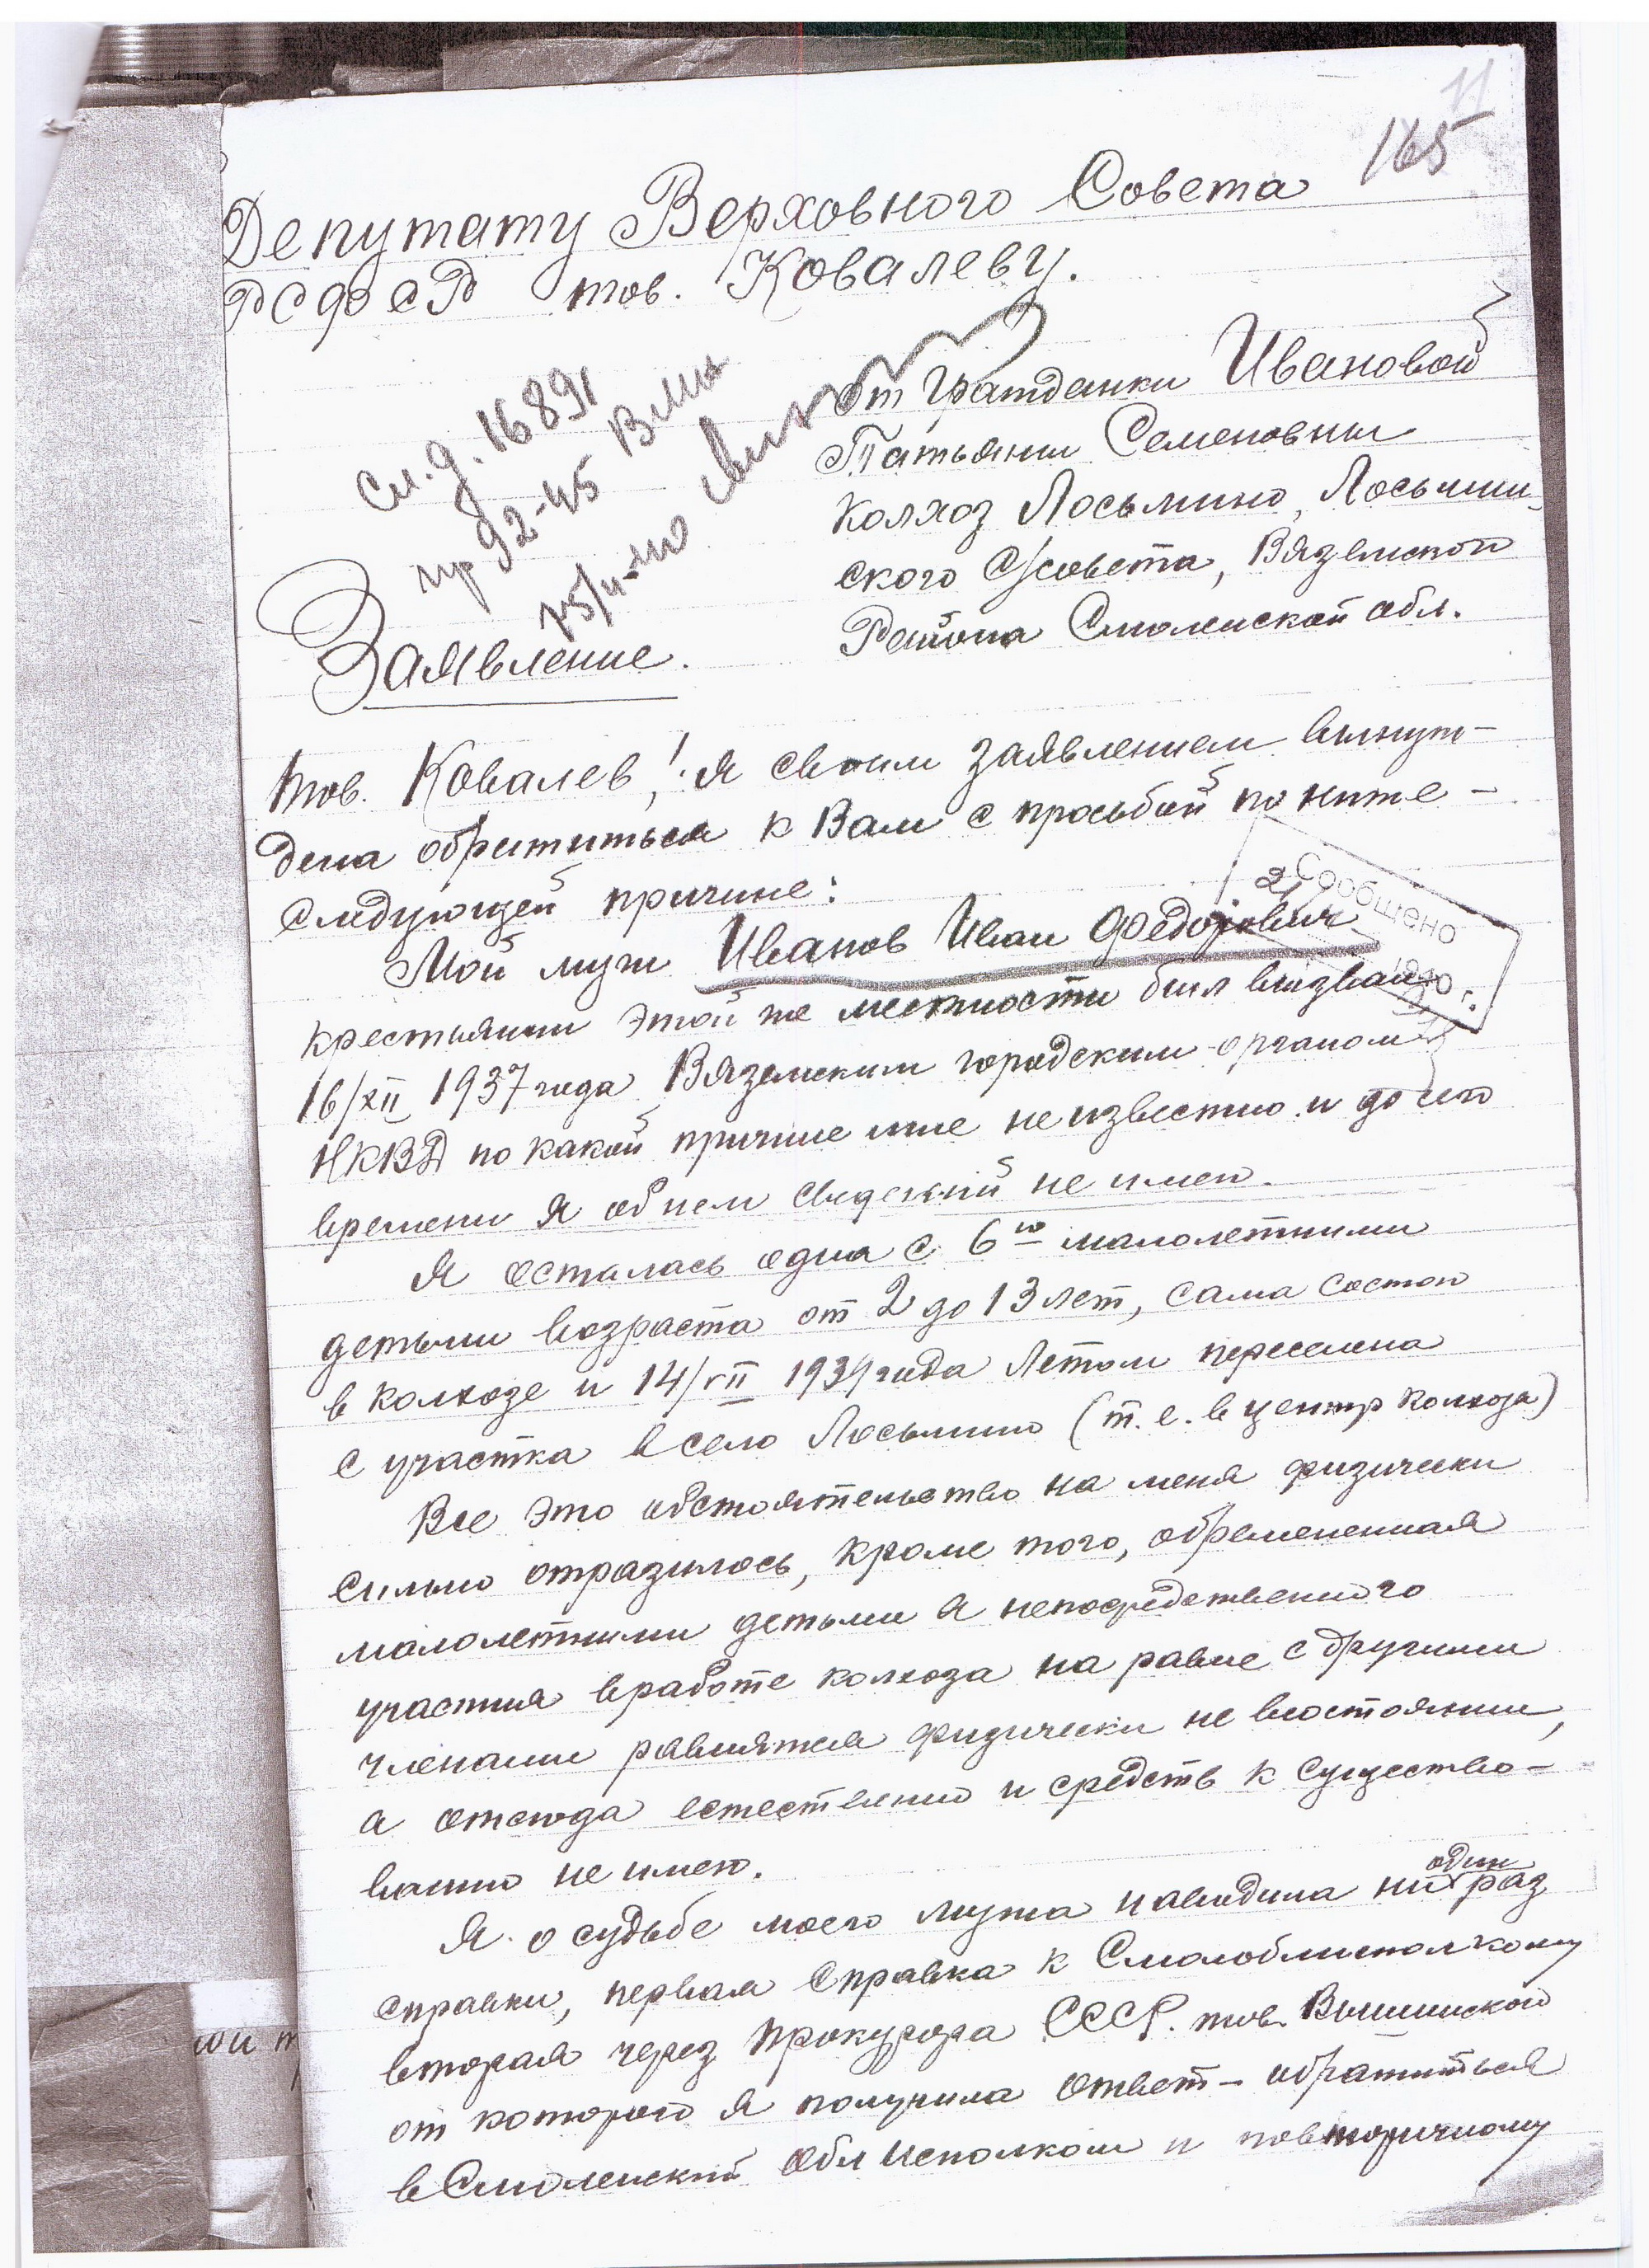 11
165
Депутату Верховного Совета
РСФСР тов. Ковалеву.
См. д. 16891
пр 92-45 ВМН
От Гражданки Ивановой
Татьяны Семеновны
Колхоз Лосьмино, Лосьмин-
ского С/совета, Вяземского
Района Смоленской обл.
Заявление.
Тов. Ковалев! я своим заявлением вынуж-
дена обратиться к Вам с просьбой по ниже-
следующей причине:
Мой муж Иванов Иван Федорович
Сообщено
21
1940 г.
крестьянин этой же местности был вызван
16/XII 1937 года Вяземским городским органом
НКВД по какой причине мне неизвестно и до сего
времени я об нем сведений не имею.
Я осталась одна с 6ю малолетними
детьми возраста от 2 до 13 лет, сама состою
в колхозе и 14/VII 1939 года Летом переселена
с участка в село Лосьмино (т.е. в центр колхоза)
Все это обстоятельство на меня физически
сильно отразилось, кроме того, обремененная
малолетними детьми я непосредственного
участия в работе колхоза на равне с другими
членами равнятся физически не в состоянии,
а отсюда естественно и средств к существо-
ванию не имею.
Я о судьбе моего мужа наводила не один раз
справки, первая справка к Смолоблисполкому
вторая через Прокурора СССР. тов. Вышинской
от которого я получила ответ - обратиться
в Смоленский Облисполком и повторичному